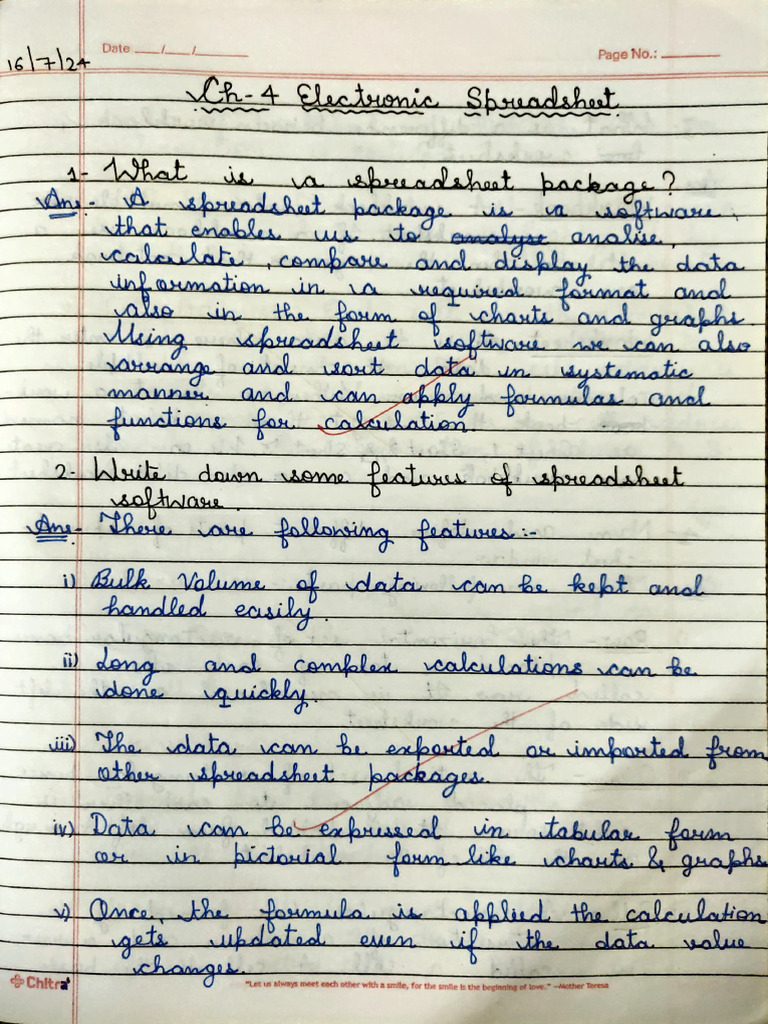 Date ___/___/______
Page No.: ______
16/7/24
Ch-4 Electronic Spreadsheet
1- What is a spreadsheet package?
Ans- A spreadsheet package is a software,
that enables us to analyse analise,
calculate, compare and display the data
information in a required format and
also in the form of charts and graphs.
Using spreadsheet software we can also
arrange and sort data in systematic
manner and can apply formulas and
functions for calculation.
2- Write down some features of spreadsheet
software.
Ans- There are following features:-
i) Bulk Volume of data can be kept and
handled easily.
ii) Long and complex calculations can be
done quickly.
iii) The data can be exported or imported from
other spreadsheet packages.
iv) Data can be expressed in tabular form
or in pictorial form like charts & graphs
v) Once, the formula is applied the calculation
gets updated even if the data value
changes.
Chitra
"Let us always meet each other with a smile, for the smile is the beginning of love." —Mother Teresa